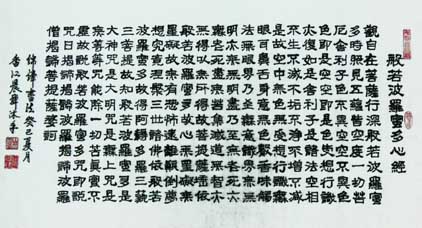 般若波羅蜜多心經
觀自在菩薩行深般若波羅蜜
多時照見五蘊皆空度一切苦
厄舍利子色不異空空不異色
色即是空空即是色受想行識
亦復如是舍利子是諸法空相
不生不滅不垢不淨不增不減
是故空中無色無受想行識無
眼耳鼻舌身意無色聲香味觸
法無眼界乃至無意識界無無
明亦無無明盡乃至無老死亦
無老死盡無苦集滅道無智亦
無得以無所得故菩提薩埵依
般若波羅蜜多故心無罣礙無
罣礙故無有恐怖遠離顛倒夢
想究竟涅槃三世諸佛依般若
波羅蜜多故得阿耨多羅三藐
三菩提故知般若波羅蜜多是
大神咒是大明咒是無上咒是
無等等咒能除一切苦真實不
虛故說般若波羅蜜多咒即說
咒曰揭諦揭諦波羅揭諦波羅
僧揭諦菩提薩婆訶
書法癸巳夏月
香江沐手